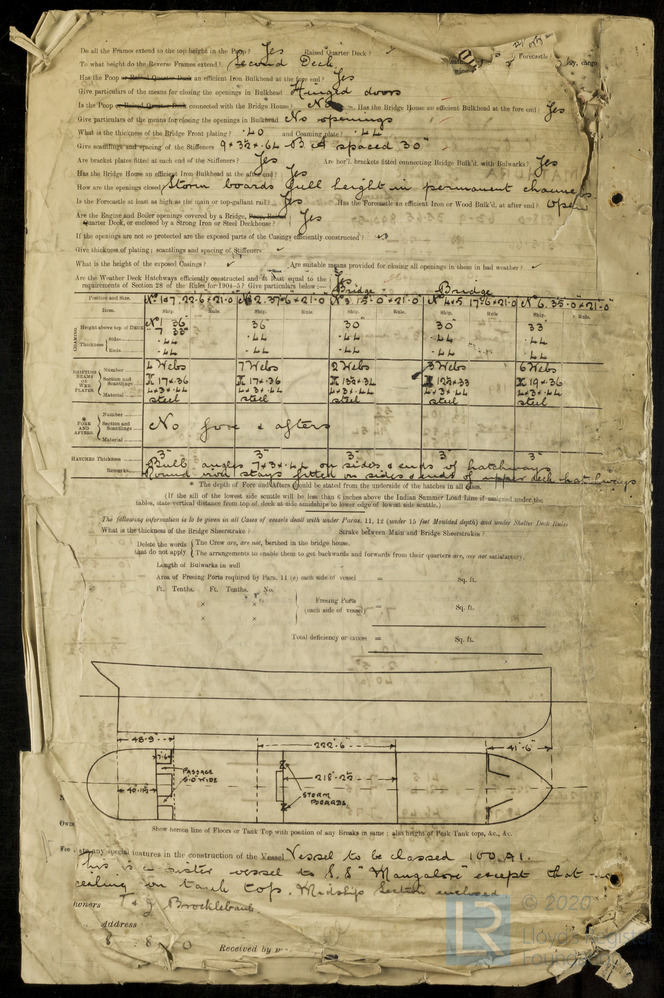 Do all the Frames extend to the top height in the Poop? Yes Raised Quarter Deck? Forecastle
To what height do the Reverse Frames extend? Second Deck
Has the Poop or Raised Quarter Deck an efficient Iron Bulkhead at the fore end? Yes
Give particulars of the means for closing the openings in Bulkhead Hinged doors
Is the Poop or Raised Quarter Deck connected with the Bridge House? No Has the Bridge House an efficient Bulkhead at the fore end? Yes
Give particulars of the means for closing the openings in Bulkhead No openings
What is the thickness of the Bridge Front plating? .40 and Coaming plate? .44
Give scantlings and spacing of the Stiffeners 9 x 3½ x .64 B A spaced 30"
Are bracket plates fitted at each end of the Stiffeners? Yes Are hor'l. brackets fitted connecting Bridge Bulk'd. with Bulwarks? Yes
Has the Bridge House an efficient Iron Bulkhead at the after end? Yes
How are the openings closed? Storm boards full height in permanent channels
Is the Forecastle at least as high as the main or top-gallant rail? Yes Has the Forecastle an efficient Iron or Wood Bulk'd. at after end? Open
Are the Engine and Boiler openings covered by a Bridge, Poop, Raised
Quarter Deck, or enclosed by a Strong Iron or Steel Deckhouse? Yes
If the openings are not so protected are the exposed parts of the Casings efficiently constructed?
Give thickness of plating; scantlings and spacing of Stiffeners
What is the height of the exposed Casings? Are suitable means provided for closing all openings in them in bad weather?
Are the Weather Deck Hatchways efficiently constructed and at least equal to the
requirements of Section 28 of the Rules for 1904-5? Give particulars below:— Yes
Bridge Bridge
Position and Size. No 1 & 7. 22.6 x 21.0 No 2. 37.6 x 21.0 No 3. 15.0 x 21.0 No 4 & 5. 17.6 x 21.0 No 6. 35.0 x 21.0
Item. Ship. Rule. Ship. Rule. Ship. Rule. Ship. Rule. Ship. Rule.
COAMING
Height above top of Deck No 1 36" 7 33" 36" 30" 30" 33"
Thickness Sides .44 .44 .44 .44 .44
Ends .44 .44 .44 .44 .44
SHIFTING BEAMS OR WEB PLATES.
Number 4 Webs 7 Webs 2 Webs 3 Webs 6 Webs
Section and Scantlings 17 x .36 17 x .36 13½ x .34 12½ x .33 19 x .36
4 x 3 x .44 4 x 3 x .44 4 x 3 x .44 4 x 3 x .44 4 x 3 x .44
Material steel steel steel steel steel
* FORE AND AFTERS.
Number
Section and Scantlings No fore & afters
Material
HATCHES Thickness 3" 3" 3" 3" 3"
Remarks Bulb angles 7 x 3 x .44 on sides & ends of hatchways
Round iron stays fitted on sides & ends of upper deck hatchways
* The depth of Fore and Afters should be stated from the underside of the hatches in all cases.
(If the sill of the lowest side scuttle will be less than 6 inches above the Indian Summer Load Line if assigned under the
tables, state vertical distance from top of deck at side amidships to lower edge of lowest side scuttle.)
The following information is to be given in all Cases of vessels dealt with under Paras. 11, 12 (under 15 feet Moulded depth) and under Shelter Deck Rules
What is the thickness of the Bridge Sheerstrake? Strake between Main and Bridge Sheerstrakes?
Delete the words that do not apply
The Crew are, are not, berthed in the bridge house.
The arrangements to enable them to get backwards and forwards from their quarters are, are not satisfactory.
Length of Bulwarks in well
Area of Freeing Ports required by Para. 11 (e) each side of vessel = Sq. ft.
Ft. Tenths. Ft. Tenths. No.
×
×
Freeing Ports (each side of vessel) Sq. ft.
×
×
Total deficiency or excess = Sq. ft.
48.9 222'.6" 41'.6"
PASSAGE
STORM BOARDS
Show hereon line of Floors or Tank Top with position of any Breaks in same; also height of Peak Tank tops, &c., &c.
any special features in the construction of the Vessel Vessel to be classed 100.A1.
This is a sister vessel to S.S "Mangalore" except that no
ceiling on tank top. Midship Section enclosed
Owners T & J Brocklebank.
Address
Received by
© 2020
Lloyd's Register
Foundation